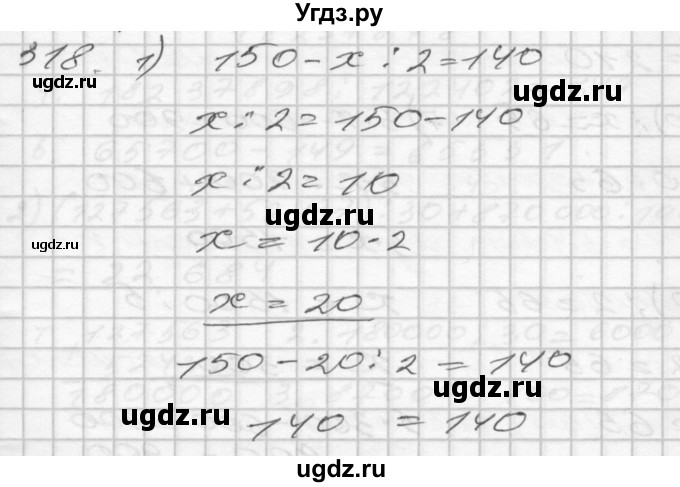 Угдз.ру
318. 1) 150 - x : 2 = 140
ugdz.ru
ugdz.ru
x : 2 = 150 - 140
ugdz.ru
x : 2 = 10
ugdz.ru
ugdz.ru
x = 10 · 2
x = 20
ugdz.ru
ugdz.ru
150 - 20 : 2 = 140
ugdz.ru
ugdz.ru
140 = 140
ugdz.ru
ugdz.ru